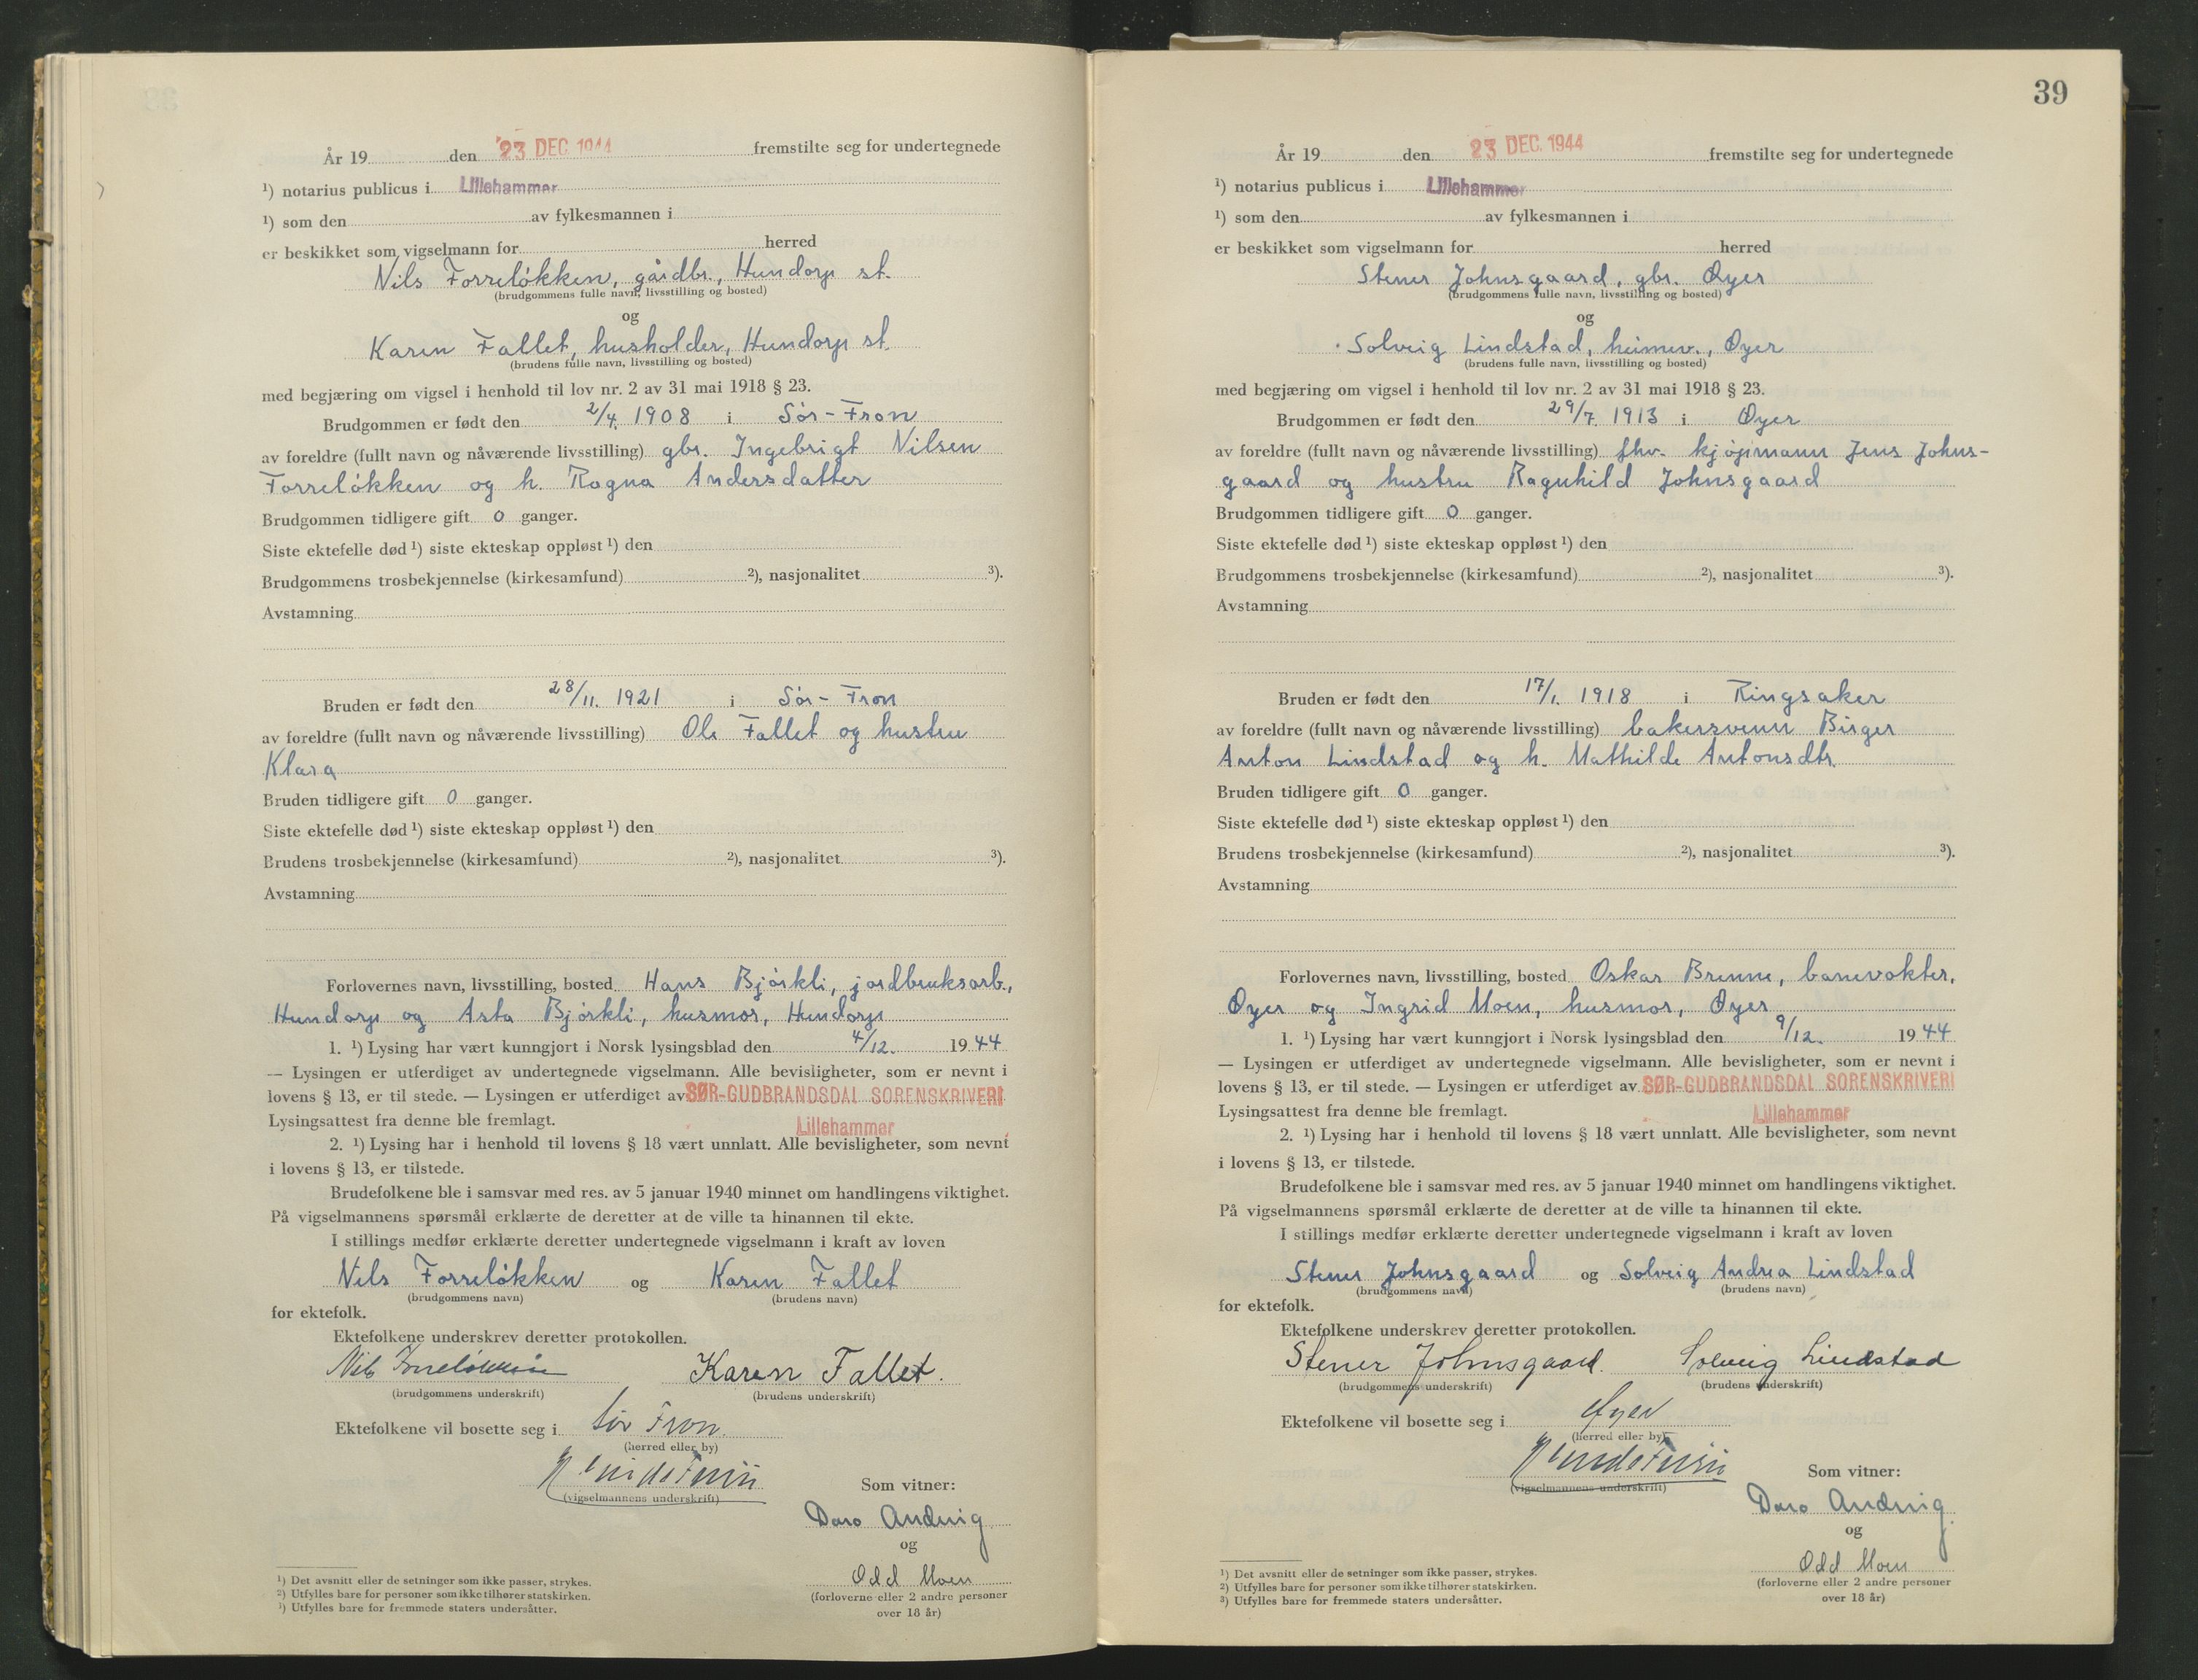 År 19 den 23 DEC 1944 fremstilte seg for undertegnede
¹) notarius publicus i Lillehammer
¹) som den av fylkesmannen i
er beskikket som vigselmann for herred
Nils Forreløkken, gårdbr., Hundorp st.
(brudgommens fulle navn, livsstilling og bosted)
og
Karen Fallet, husholder, Hundorp st.
(brudens fulle navn, livsstilling og bosted)
med begjæring om vigsel i henhold til lov nr. 2 av 31 mai 1918 § 23.
Brudgommen er født den 2/4. 1908 i Sør-Fron
av foreldre (fullt navn og nåværende livsstilling) gbr. Ingebrigt Nilsen
Forreløkken og h. Ragna Andersdatter
Brudgommen tidligere gift 0 ganger.
Siste ektefelle død ¹) siste ekteskap oppløst ¹) den
Brudgommens trosbekjennelse (kirkesamfund) ²), nasjonalitet ³).
Avstamning
Bruden er født den 28/11. 1921 i Sør-Fron
av foreldre (fullt navn og nåværende livsstilling) Ole Fallet og hustru
Klara
Bruden tidligere gift 0 ganger.
Siste ektefelle død ¹) siste ekteskap oppløst ¹) den
Brudens trosbekjennelse (kirkesamfund) ²), nasjonalitet ³).
Avstamning
Forlovernes navn, livsstilling, bosted Hans Bjørkli, jordbruksarb.,
Hundorp og Asta Bjørkli, husmor, Hundorp
1. ¹) Lysing har vært kunngjort i Norsk lysingsblad den 4/12. 1944
— Lysingen er utferdiget av undertegnede vigselmann. Alle bevisligheter, som er nevnt i
lovens § 13, er til stede. — Lysingen er utferdiget av SØR-GUDBRANDSDAL SORENSKRIVERI
Lysingsattest fra denne ble fremlagt. Lillehammer
2. ¹) Lysing har i henhold til lovens § 18 vært unnlatt. Alle bevisligheter, som nevnt
i lovens § 13, er tilstede.
Brudefolkene ble i samsvar med res. av 5 januar 1940 minnet om handlingens viktighet.
På vigselmannens spørsmål erklærte de deretter at de ville ta hinannen til ekte.
I stillings medfør erklærte deretter undertegnede vigselmann i kraft av loven
Nils Forreløkken og Karen Fallet
(brudgommens navn) (brudens navn)
for ektefolk.
Ektefolkene underskrev deretter protokollen.
Nils Forreløkken Karen Fallet.
(brudgommens underskrift) (brudens underskrift)
Ektefolkene vil bosette seg i Sør Fron.
(herred eller by)
(vigselmannens underskrift)
Som vitner:
Andvig
og
Odd Moen
(forloverne eller 2 andre personer
over 18 år)
¹) Det avsnitt eller de setninger som ikke passer, strykes.
²) Utfylles bare for personer som ikke tilhører statskirken.
³) Utfylles bare for fremmede staters undersåtter.
39
År 19 den 23 DEC. 1944 fremstilte seg for undertegnede
¹) notarius publicus i Lillehammer
¹) som den av fylkesmannen i
er beskikket som vigselmann for herred
Stener Johnsgaard, gbr. Øyer
(brudgommens fulle navn, livsstilling og bosted)
og
Solveig Lindstad, heimev., Øyer
(brudens fulle navn, livsstilling og bosted)
med begjæring om vigsel i henhold til lov nr. 2 av 31 mai 1918 § 23.
Brudgommen er født den 29/7. 1913 i Øyer
av foreldre (fullt navn og nåværende livsstilling) fhv. kjøpmann Jens Johns-
gaard og hustru Ragnhild Johnsgaard
Brudgommen tidligere gift 0 ganger.
Siste ektefelle død ¹) siste ekteskap oppløst ¹) den
Brudgommens trosbekjennelse (kirkesamfund) ²), nasjonalitet ³).
Avstamning
Bruden er født den 17/1. 1918 i Ringsaker
av foreldre (fullt navn og nåværende livsstilling) bakersvenn Birger
Anton Lindstad og h. Mathilde Antonsdtr.
Bruden tidligere gift 0 ganger.
Siste ektefelle død ¹) siste ekteskap oppløst ¹) den
Brudens trosbekjennelse (kirkesamfund) ²), nasjonalitet ³).
Avstamning
Forlovernes navn, livsstilling, bosted Oskar Brenne, banevokter,
Øyer og Ingrid Moen, husmor, Øyer
1. ¹) Lysing har vært kunngjort i Norsk lysingsblad den 9/12. 1944
— Lysingen er utferdiget av undertegnede vigselmann. Alle bevisligheter, som er nevnt i
lovens § 13, er til stede. — Lysingen er utferdiget av SØR-GUDBRANDSDAL SORENSKRIVERI
Lysingsattest fra denne ble fremlagt. Lillehammer
2. ¹) Lysing har i henhold til lovens § 18 vært unnlatt. Alle bevisligheter, som nevnt
i lovens § 13, er tilstede.
Brudefolkene ble i samsvar med res. av 5 januar 1940 minnet om handlingens viktighet.
På vigselmannens spørsmål erklærte de deretter at de ville ta hinannen til ekte.
I stillings medfør erklærte deretter undertegnede vigselmann i kraft av loven
Stener Johnsgaard og Solveig Andrea Lindstad
(brudgommens navn) (brudens navn)
for ektefolk.
Ektefolkene underskrev deretter protokollen.
Stener Johnsgaard. Solveig Lindstad
(brudgommens underskrift) (brudens underskrift)
Ektefolkene vil bosette seg i Øyer
(herred eller by)
(vigselmannens underskrift)
Som vitner:
Andvig
og
Odd Moen
(forloverne eller 2 andre personer
over 18 år)
¹) Det avsnitt eller de setninger som ikke passer, strykes.
²) Utfylles bare for personer som ikke tilhører statskirken.
³) Utfylles bare for fremmede staters undersåtter.